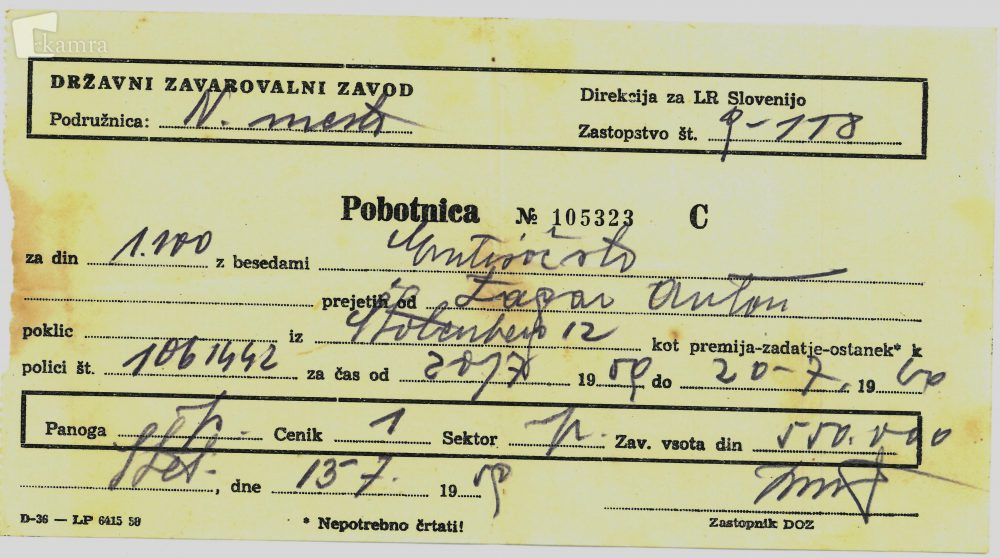 kamra
DRŽAVNI ZAVAROVALNI ZAVOD
Direkcija za LR Slovenijo
Podružnica: N. mesto
Zastopstvo št. 9-118
Pobotnica № 105323 C
za din 1.100 z besedami
prejetih od Žagar Anton
poklic iz 12 kot premija-zadatje-ostanek* k
polici št. 1061442 za čas od 20/7 1959 do 20-7. 1960
Panoga p. Cenik 1 Sektor p. Zav. vsota din 550.000
, dne 13-7. 1959
D-36 — LP 6415 58
* Nepotrebno črtati!
Zastopnik DOZ